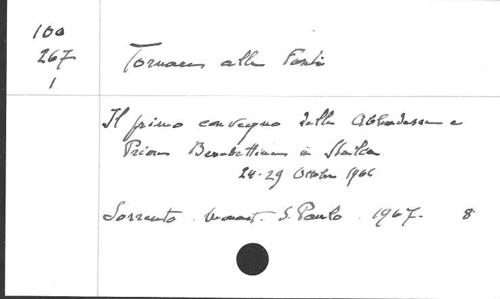 100
267
1
Tornare alle Fonti
Il primo convegno delle Abbadesse e
Priore Benedettine in Italia
24-29 Ottobre 1966
Sorrento. Monast. S. Paolo. 1967. 8°